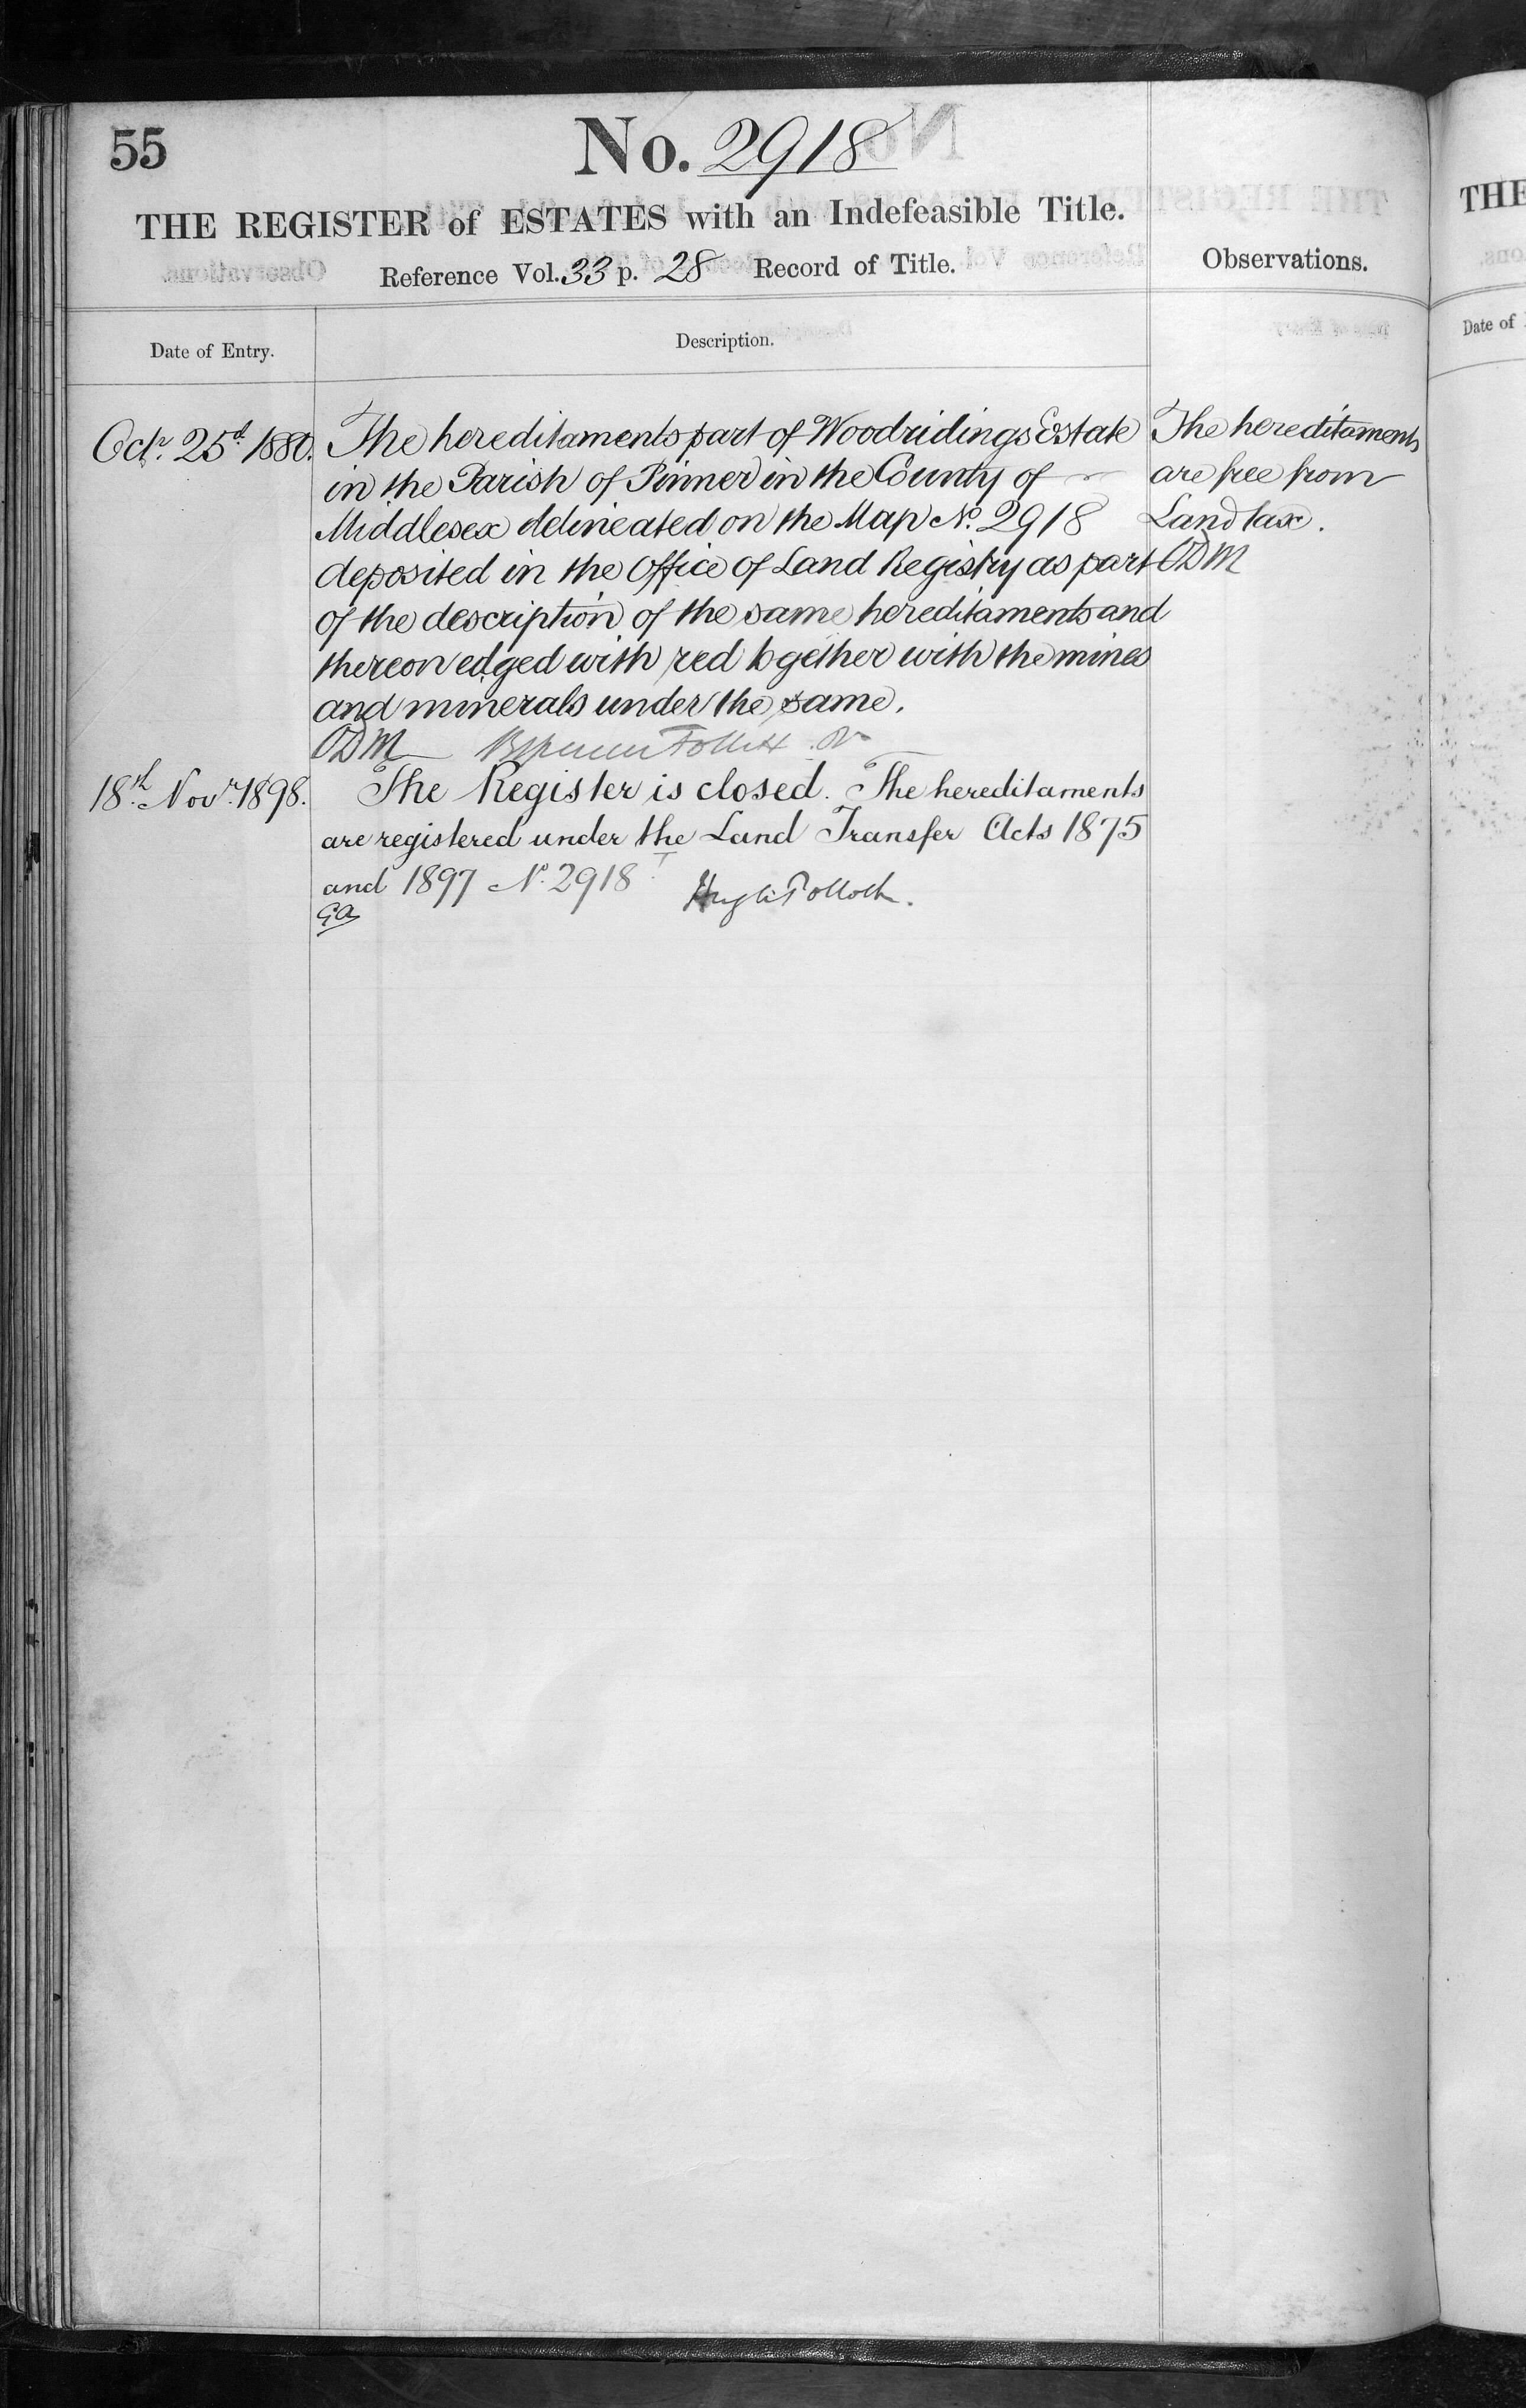 55
No. 2918
THE REGISTER of ESTATES with an Indefeasible Title.
Reference Vol. 33 p. 28 Record of Title.
Observations.
Date of Entry.
Description.
Octr. 25th. 1880.
The hereditaments part of Woodridings Estate
in the Parish of Pinner in the County of
Middlesex delineated on the Map No. 2918
deposited in the Office of Land Registry as part
of the description of the same hereditaments and
thereon edged with red together with the mines
and minerals under the same.
ODM
The hereditaments
are free from
Land tax.
ODM
18th. Novr. 1898.
The Register is closed. The hereditaments
are registered under the Land Transfer Acts 1875
and 1897 No. 2918
Hugh Pollock.
THE
Date of